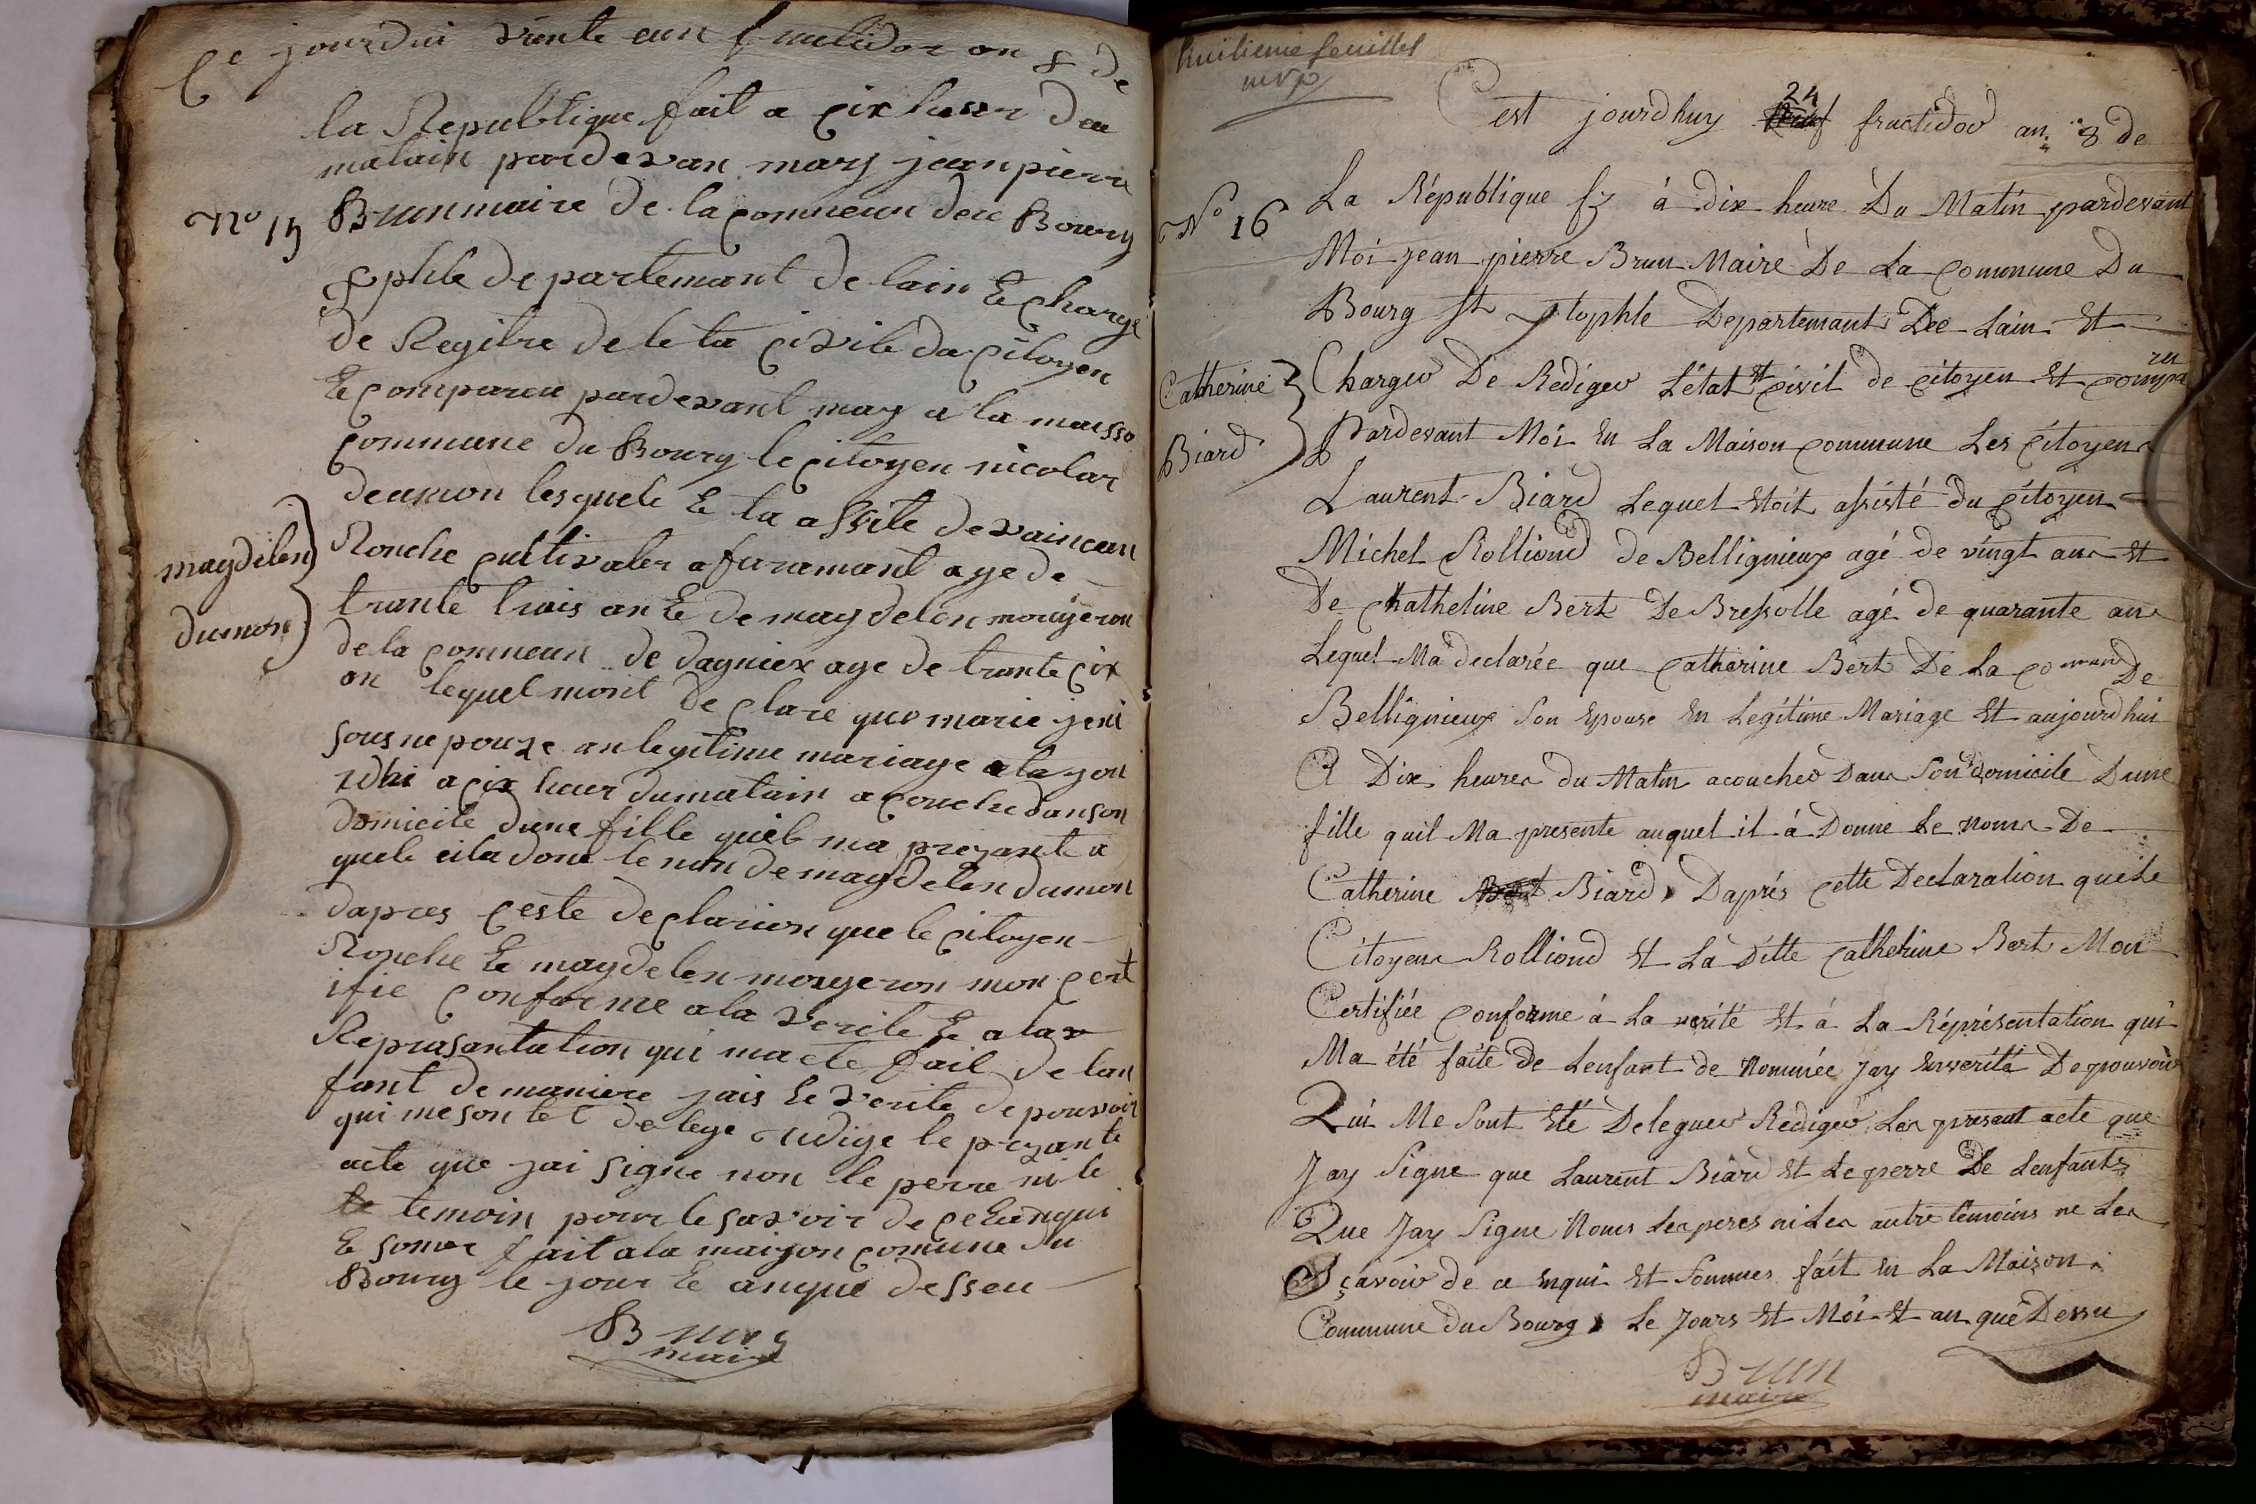 Ce jourdui vinte eun fructidor an 8 de
la Republique fait a cix heseur deu
matain pardevan moy jean pierre
No 15
Brun maire de la commeun deu Bourg
xphle departemant de lain Et charge
de Regitre de le ta civile da citoyen
Et compareu pardevant moy a la maisso
commune du Bourg le citoyen nicolas
deumon lesquele Et ta assite de vainceun
magdelen
dumon
Rouche cultivater a faramant age de
trante trois an Et de magdelon mougeron
de la commeun de dagniex age de trante cix
an lequel mont de clare que marie jeni
sous ne pouze an legitime mariage a la jou
rdhi a cix heur du matain a couche dan son
domicile dune fille quele ma prezante a
quele eila done le non de magdelen dumon
dapres ceste declarion que le citoyen
Rouche Et magdelen mougeron mon cert
ifie conforme a la verite Et a la
Reprasantation qui ma ete fait de lan
fant de maniere jais Et verite de pouvoir
qui me son te t delege redige le prezante
acte que jai signe non le perre ni le
te temoin pour le savoir de ce
Et somer fait a la maizon comune du
Bourg le jour Et anque desseu
Brun
maire
huitieme feuillet
mvp
C'est jourdhuy 24 fructidor an 8 de
No 16
La République fz à dix heure Du Matin pardevant
Moi jean pierre Brun Maire De La Commune Du
Bourg St xtophle Departemant Dee Lain Et
Catherine
Biard
Charger De Rediger L'état civil de citoyen Et compa
reu
Pardevant Moi En La Maison commune Les Citoyens
Laurent Biard Lequel Etoit assisté du Citoyen
Michel Rolliond de Bellignieux agé de vingt ans Et
De Chatheline Bert De Bressolle agé de quarante ans
Lequel Ma declarée que Catherine Bert De La commune De
Bellignieux Son Epouse En Legitime Mariage Et aujourdhui
A Dix heures du Matin acoucheo Dans Son domicile Dune
fille quil Ma presente auquel il à Donne Le Noms De
Catherine Bert Biard Daprés Cette Declaration que Le
Citoyens Rolliond Et La Ditte Catherine Bert Mon
Certifiée Conforme à La verité Et à La Réprésentation qui
Ma été faite De Lenfant de Nommée Jay En verité De pouvoir
Qui Me Sont Eté Deleguer Rediger Les present acte que
Jay Signe que Laurent Biard Et Le perre De Lenfants
Que Jay Signe Nons Les peres ni Les autre temoins ne Les
Sçavoir de ce Enqui Et Sommes fait En La Maison
Commune du Bourg Le Jours Et Moi Et an que Dessu
Brun
maire